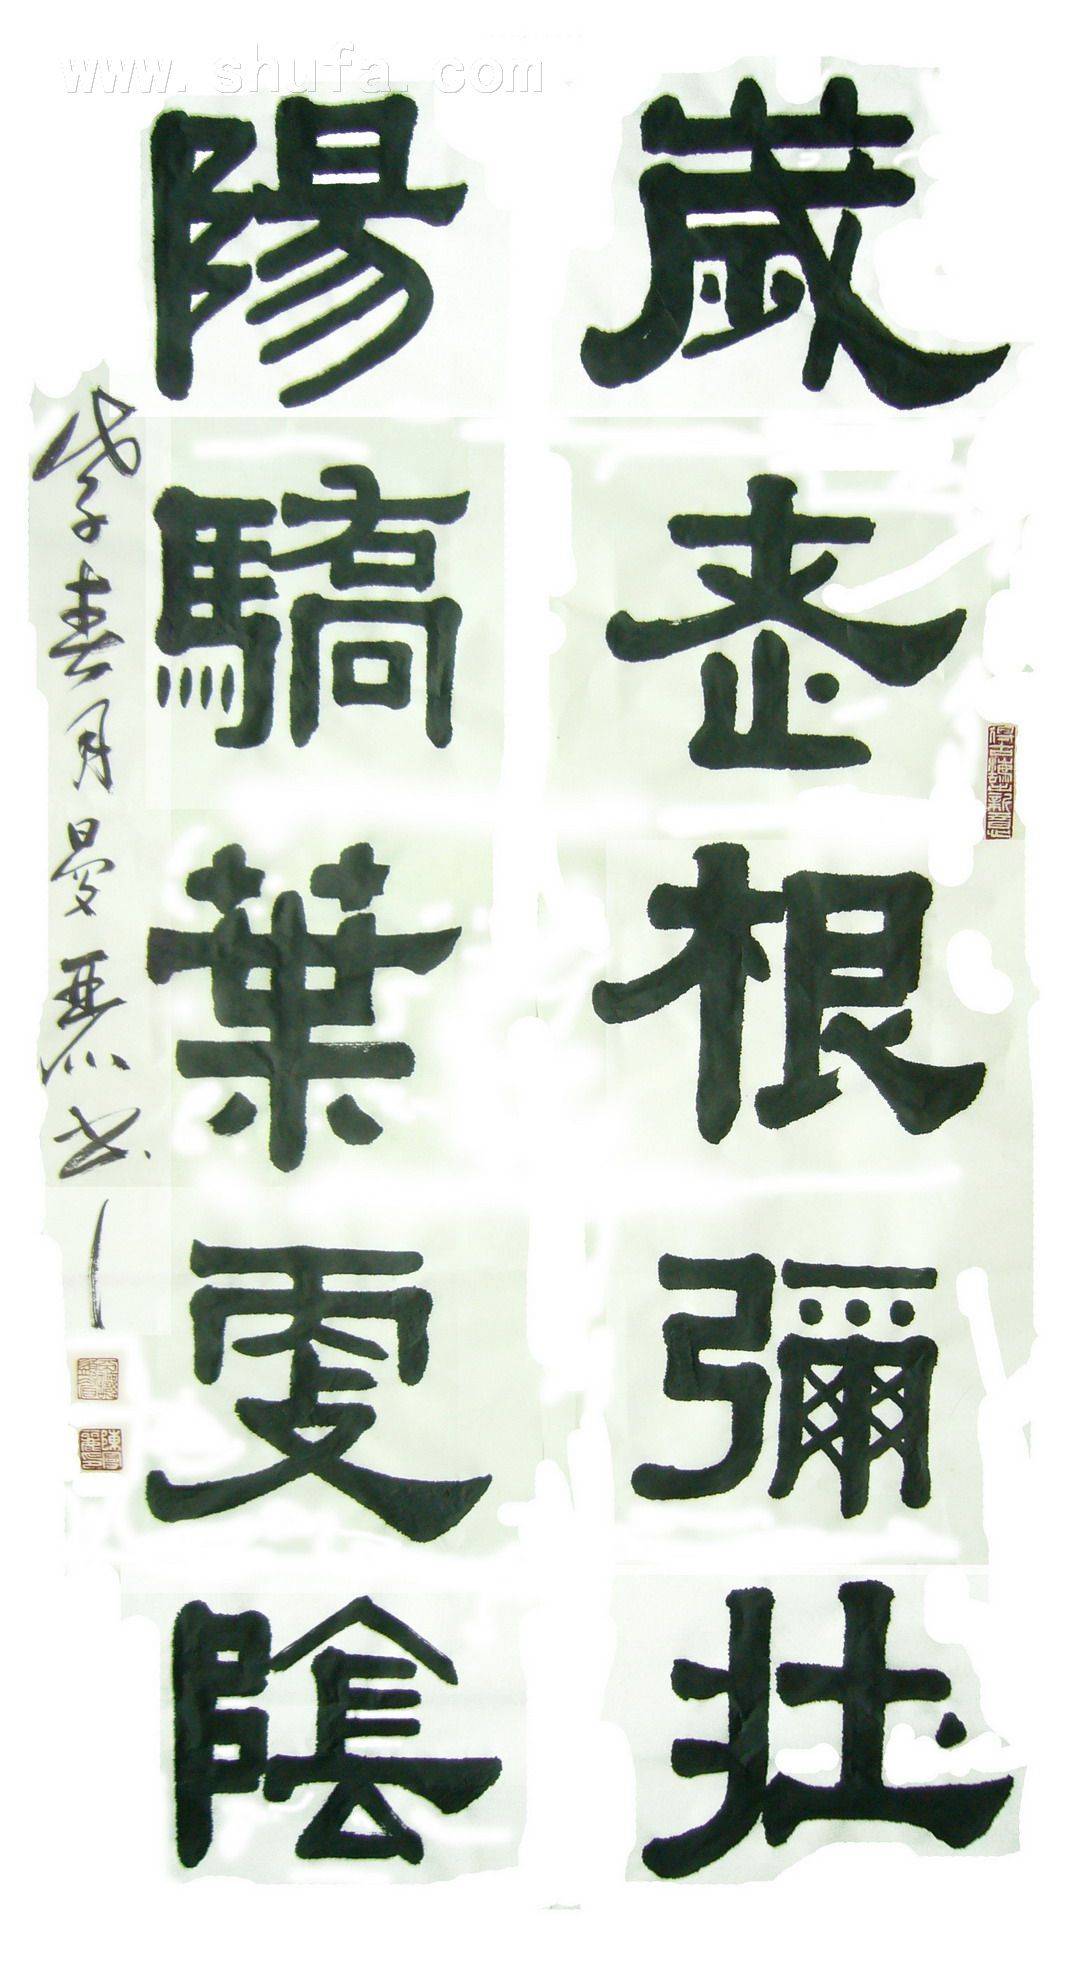 www.shufa.com
歲老根彌壯
陽驕葉更陰
戊子春月曼麗书